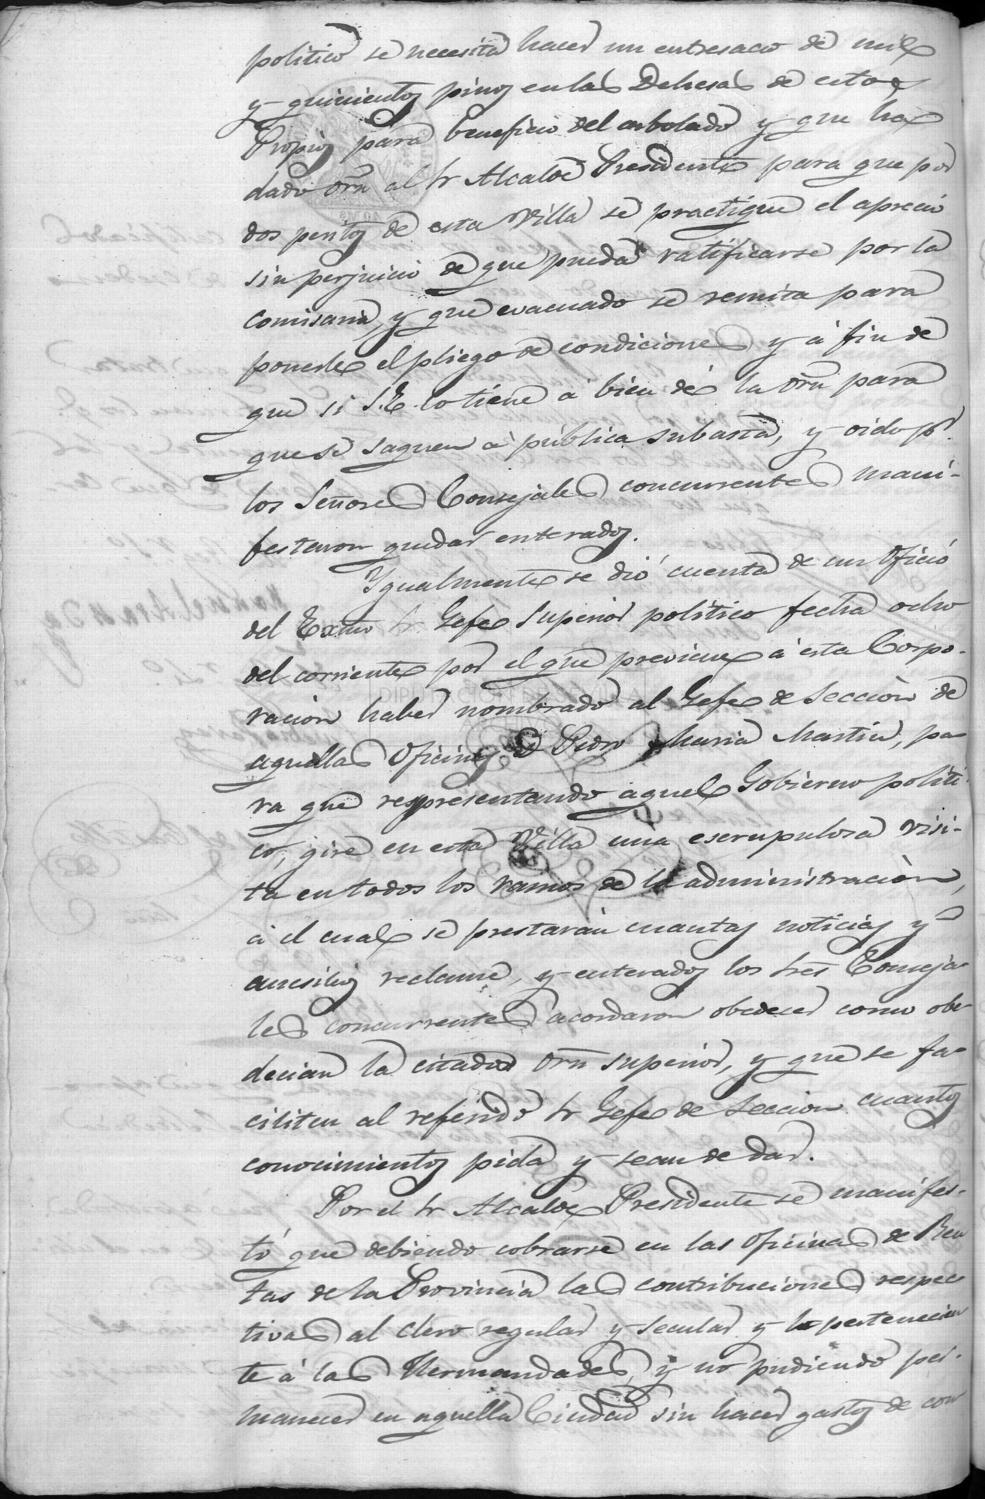 politico se necesita hacer un entresaco de mil
y quinientos pinos en las Dehesas de estos
Propios para beneficio del arbolado y que ha
dado orn al Sr Alcalde Presidente para que por
dos peritos de esta Villa se practique el aprecio
sin perjuicio de que pueda ratificarse por la
comisaria, y que evacuado se remita para
ponerle el pliego de condiciones y á fin de
que si S.E. lo tiene á bien dé la orn para
que se saquen á pública subasta, y oido pr.
los Señores Consejales concurrentes mani-
festaron quedar enterados.
Igualmente se dió cuenta de un Oficio
del Exmo Sr Gefe Superior politico fecha ocho
del corriente por el que previene á esta Corpo-
racion haber nombrado al Gefe de Seccion de
aquellas Oficinas D Pedro Maria Martin, pa
ra que representando aquel Gobierno politi-
co, gire en esta Villa una escrupulosa visi-
ta en todos los ramos de la administracion,
á el cual se prestarán cuantas noticias y
aucsilios reclame, y enterados los Sres Conseja-
les concurrentes acordaron obedecer como obe-
decian la citada orn superior, y que se fa-
ciliten al referido Sr Gefe de Seccion cuantos
conocimientos pida y sean de dar.
Por el Sr Alcalde Presidente se manifes-
tó que debiendo cobrarse en las oficinas de Ren
tas de la Provincia las contribuciones respec-
tivas al clero regular y secular y lo pertenecien
te á las Hermandades, y no pudiendo per-
manecer en aquella Ciudad sin hacer gastos de con